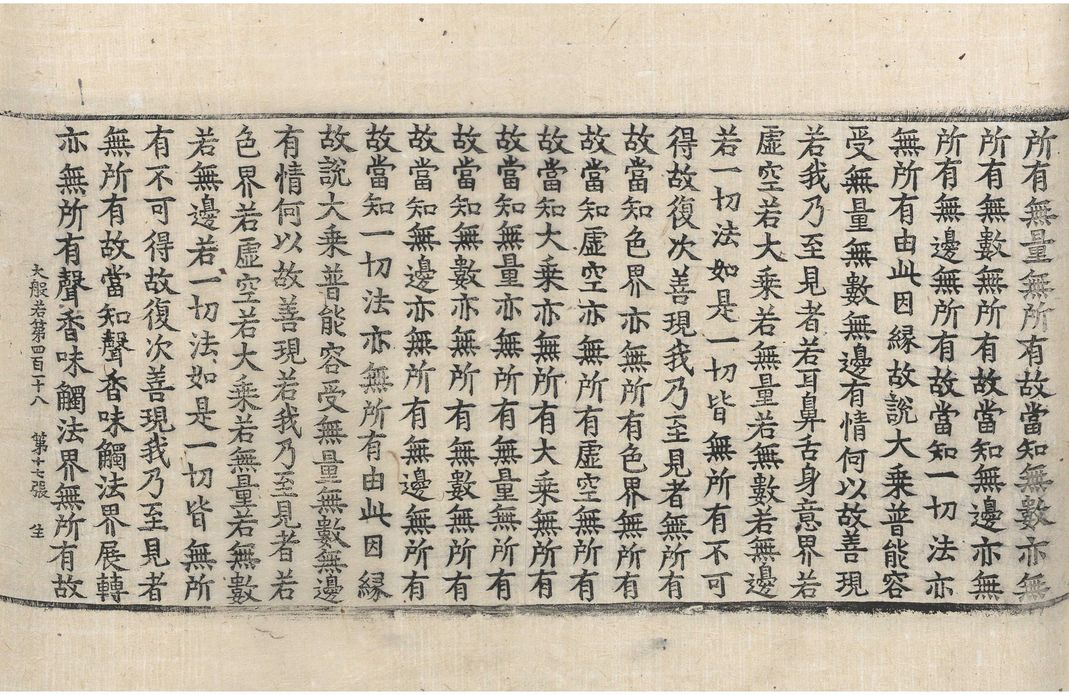 所有無量無所有故當知無數亦無
所有無數無所有故當知無邊亦無
所有無邊無所有故當知一切法亦
無所有由此因緣故說大乘普能容
受無量無數無邊有情何以故善現
若我乃至見者若耳鼻舌身意界若
虛空若大乘若無量若無數若無邊
若一切法如是一切皆無所有不可
得故復次善現我乃至見者無所有
故當知色界亦無所有色界無所有
故當知虛空亦無所有虛空無所有
故當知大乘亦無所有大乘無所有
故當知無量亦無所有無量無所有
故當知無數亦無所有無數無所有
故當知無邊亦無所有無邊無所有
故當知一切法亦無所有由此因緣
故說大乘普能容受無量無數無邊
有情何以故善現若我乃至見者若
色界若虛空若大乘若無量若無數
若無邊若一切法如是一切皆無所
有不可得故復次善現我乃至見者
無所有故當知聲香味觸法界展轉
亦無所有聲香味觸法界無所有故
大般若第四百一十八 第十七張 生